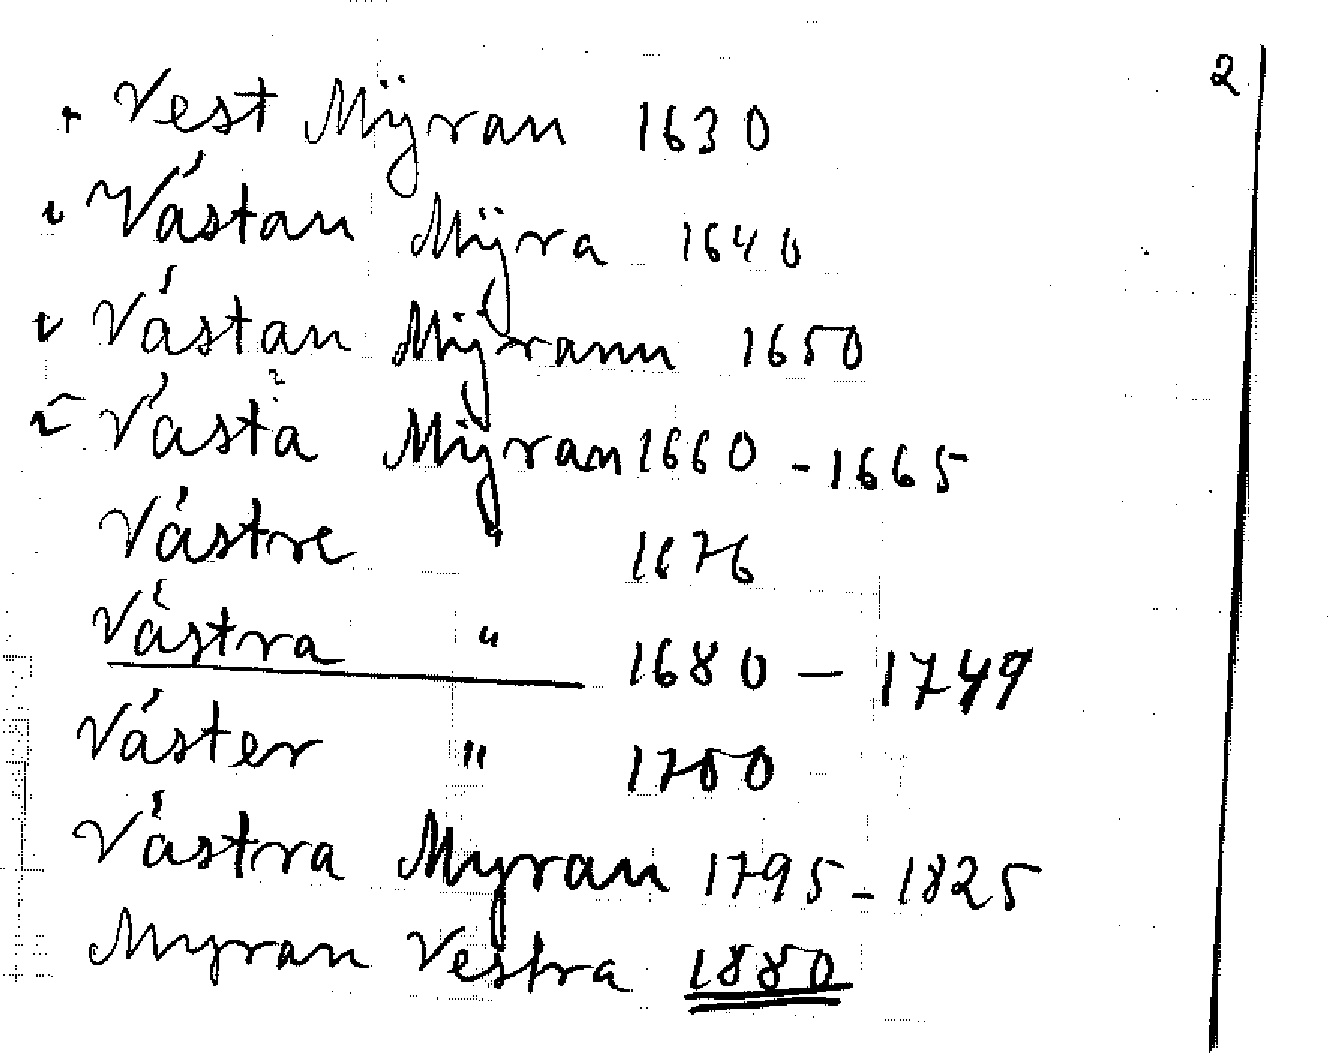 2
Vest Mÿran 1630
i Västan Mÿra 1640
i Västan Mÿrann 1650
i Västa Mÿran 1660 - 1665
Västre " 1676
Västra " 1680 - 1749
Väster " 1700
Västra Myran 1795 - 1825
Myran Vestra 1880